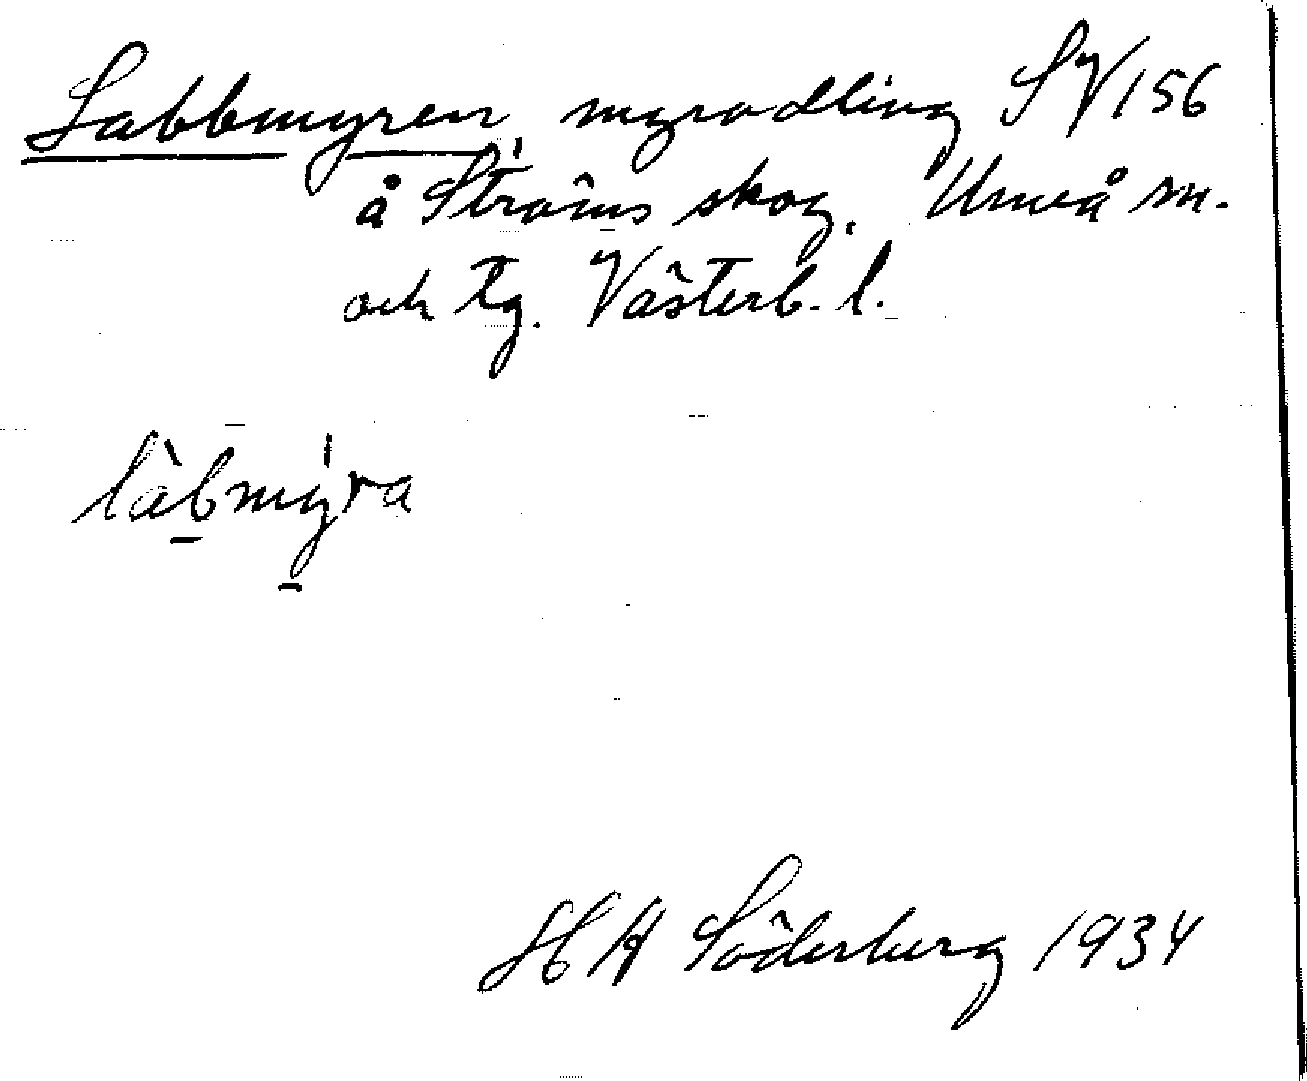 Labbmyren, myrodling SV156
å Ströms skog. Umeå sn.
och tg. Västerb. l.
làbmýra
H A Söderberg 1934